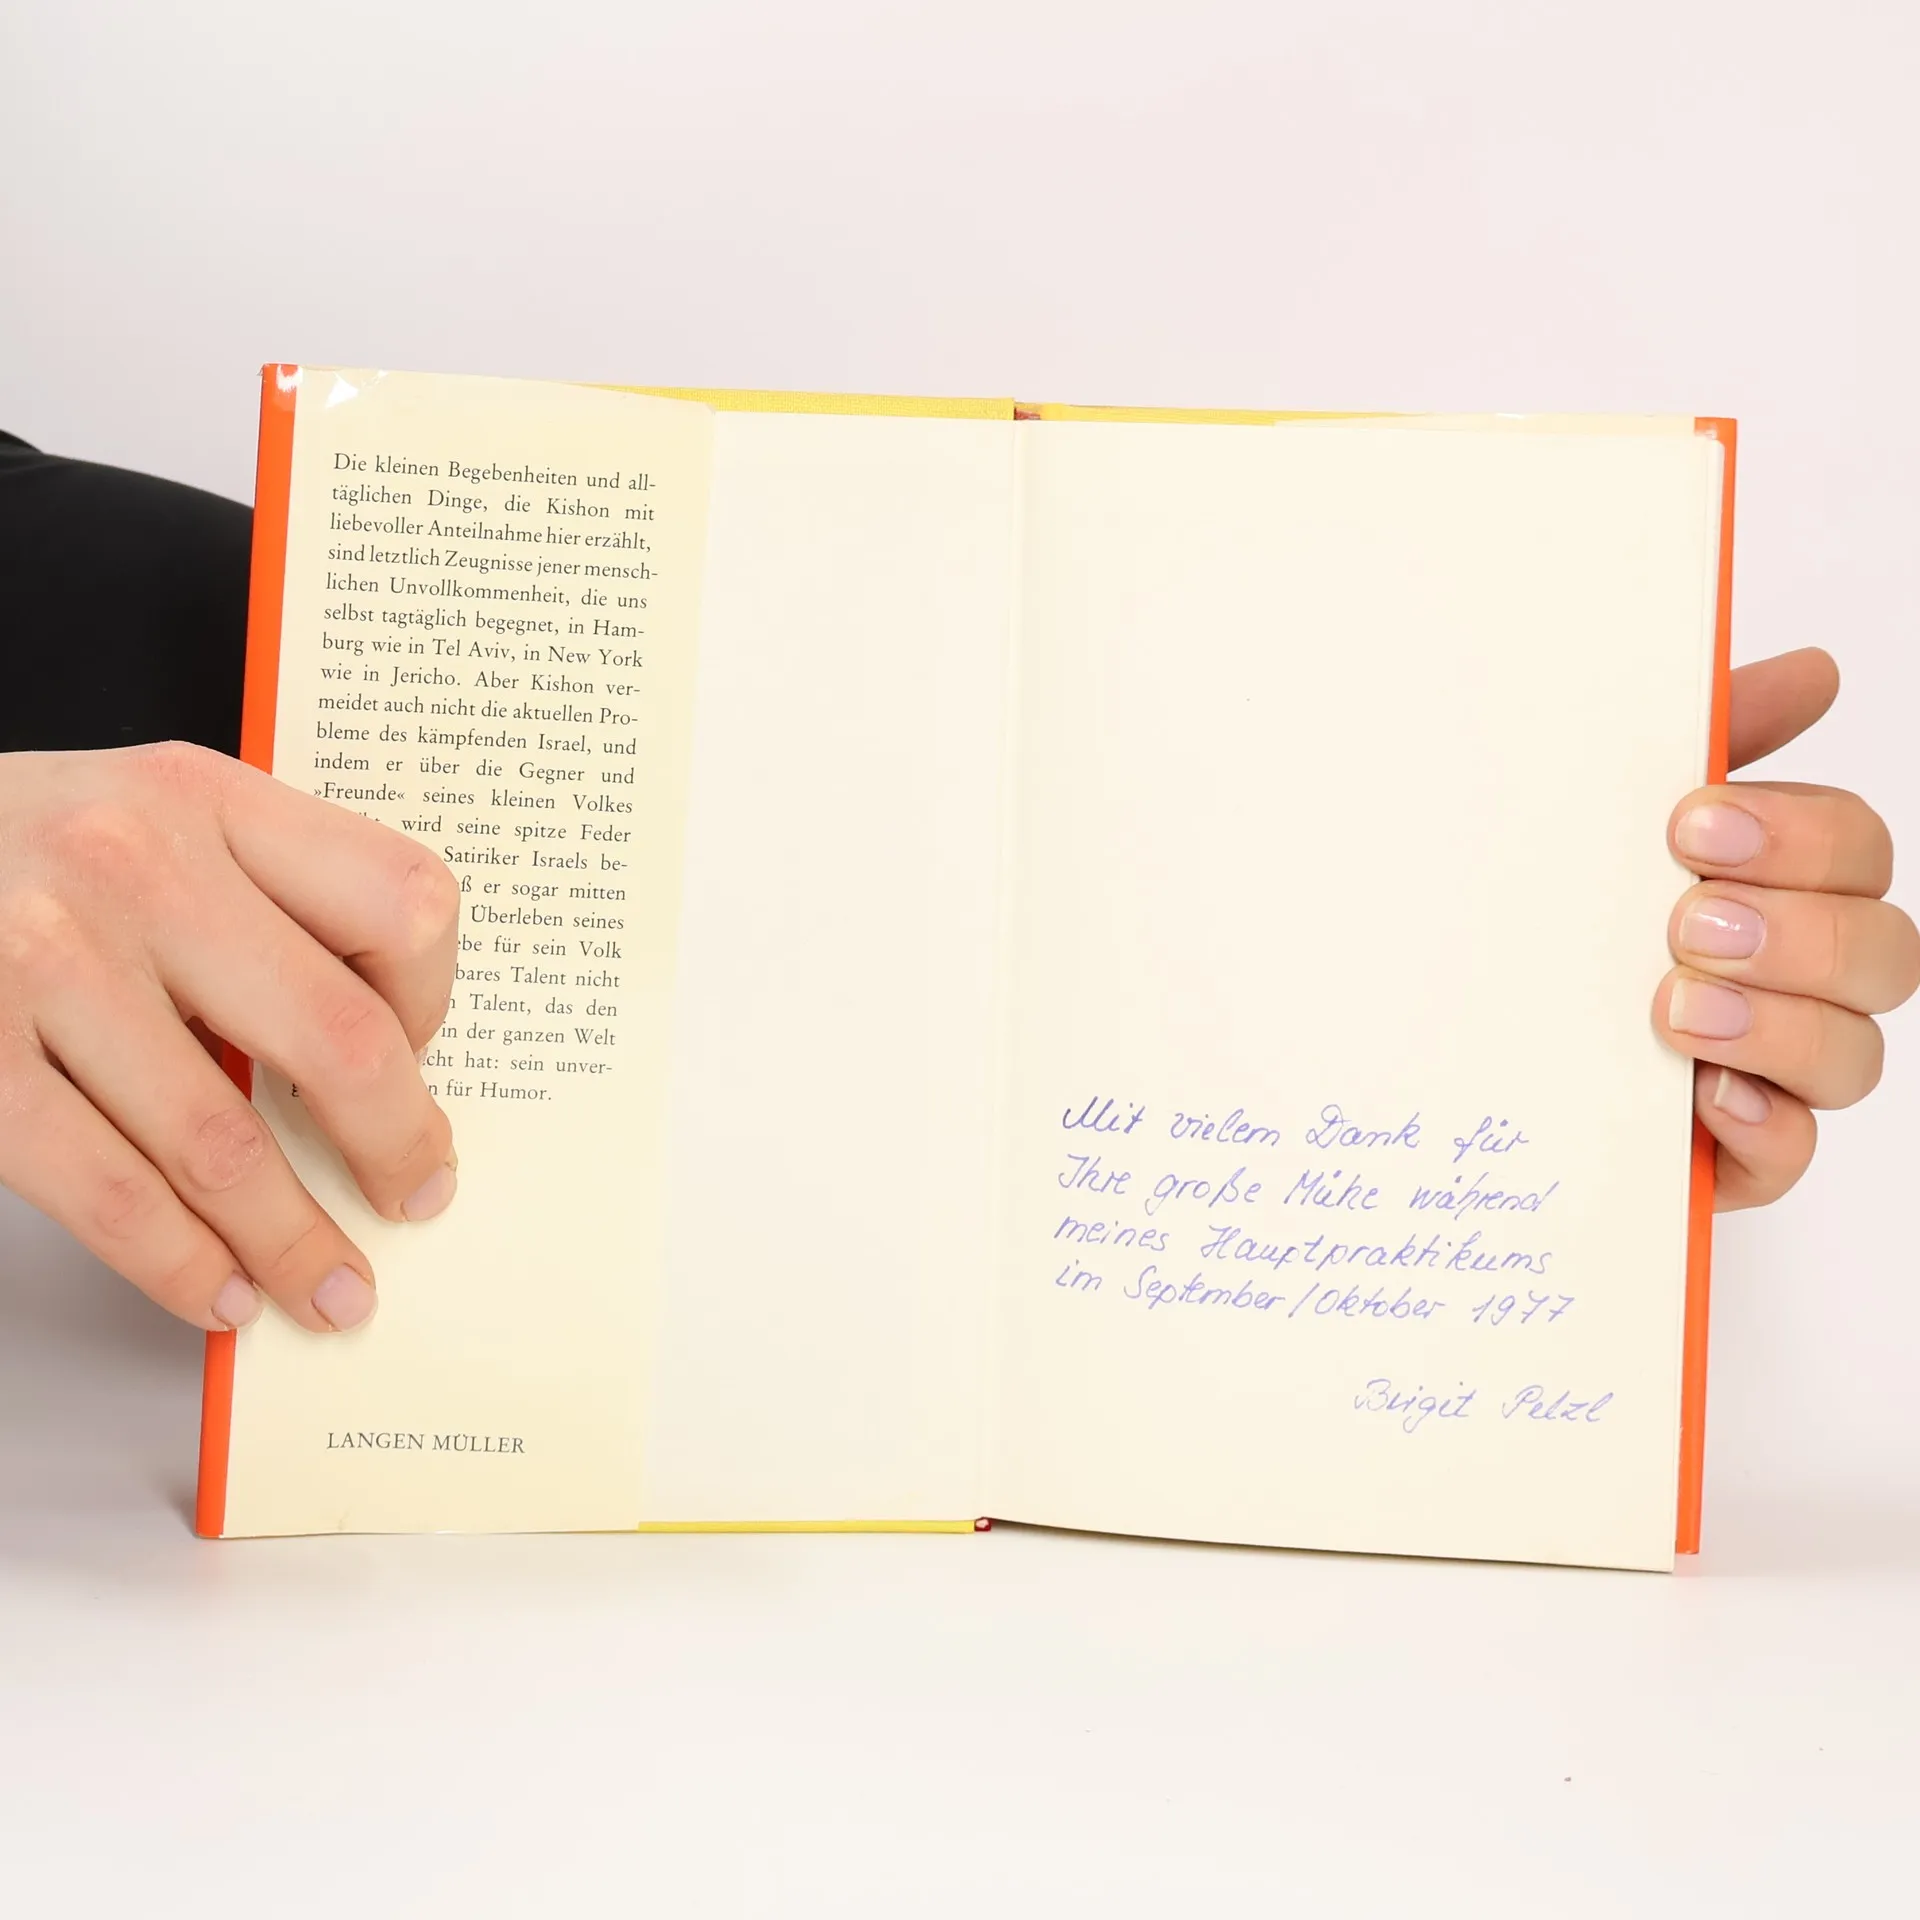 Die kleinen Begebenheiten und all-
täglichen Dinge, die Kishon mit
liebevoller Anteilnahme hier erzählt,
sind letztlich Zeugnisse jener mensch-
lichen Unvollkommenheit, die uns
selbst tagtäglich begegnet, in Ham-
burg wie in Tel Aviv, in New York
wie in Jericho. Aber Kishon ver-
meidet auch nicht die aktuellen Pro-
bleme des kämpfenden Israel, und
indem er über die Gegner und
»Freunde« seines kleinen Volkes
wird seine spitze Feder
Satiriker Israels be-
er sogar mitten
Überleben seines
für sein Volk
Talent nicht
Talent, das den
in der ganzen Welt
hat: sein unver-
für Humor.
LANGEN MÜLLER
Mit vielem Dank für
Ihre große Mühe während
meines Hauptpraktikums
im September/Oktober 1977
Birgit Pelzl